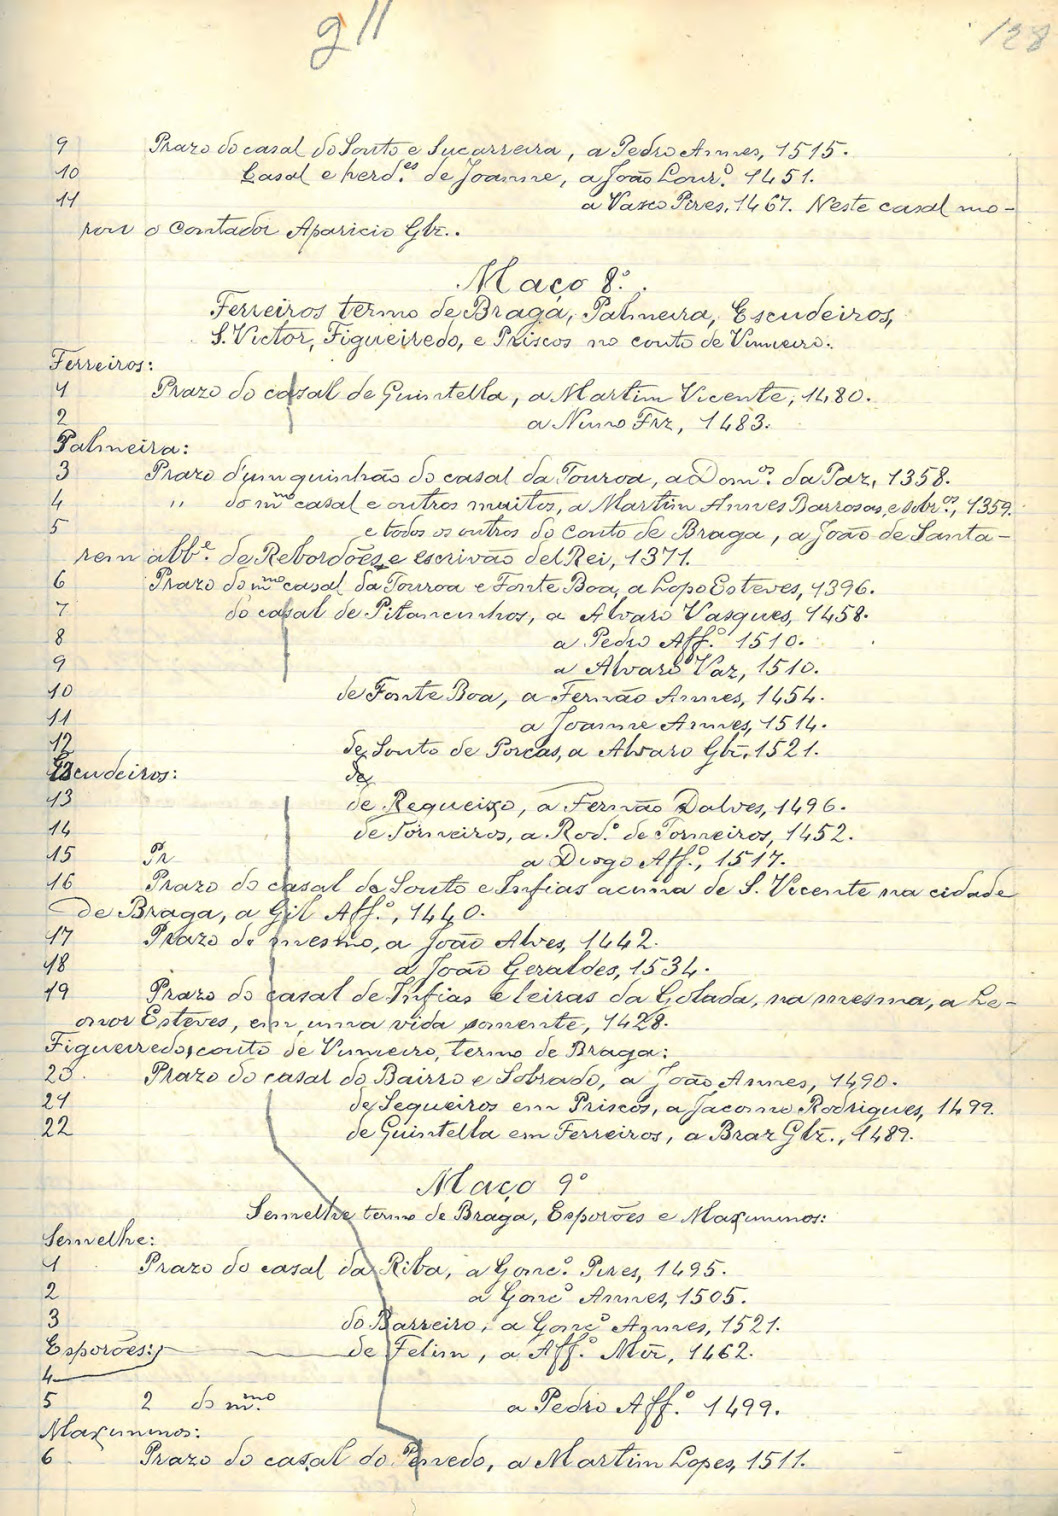 911
128
9 Prazo do casal do Souto e Sucarreira, a Pedro Annes, 1515.
10 Casal e herd.es de Joanne, a João Lour.º 1451.
11 a Vasco Pires, 1467. Neste casal mo-
rou o Contador Aparicio Glz..
Maço 8º.
Ferreiros termo de Braga, Palmeira, Escudeiros,
S. Victor, Figueiredo, e Priscos no couto de Vimieiro.
Ferreiros:
1 Prazo do casal de Guintella, a Martim Vicente, 1480.
2 a Nuno Frz, 1483.
Palmeira:
3 Prazo d'um quinhão do casal da Touroa, a Dom.os da Paz, 1358.
4 " do m.mo casal e outros muitos, a Martim Annes Barrosas, e sobr.os, 1359.
5 e todos os outros do Couto de Braga, a João de Santa-
rem abb.e de Rebordões e escrivão del Rei, 1371.
6 Prazo do m.mo casal da Touroa e Fonte Boa, a Lopo Esteves, 1396.
7 do casal de Pitancinhos, a Alvaro Vasques, 1458.
8 a Pedro Aff.º 1510.
9 a Alvaro Vaz, 1510.
10 de Fonte Boa, a Fernão Annes, 1454.
11 a Joanne Annes, 1514.
12 de Souto de Porcas, a Alvaro Glz. 1521.
Escudeiros: de
13 de Requeixo, a Fernão Dalves, 1496.
14 de Torneiros, a Rod.º de Torneiros, 1452.
15 Pr a Diogo Aff.º, 1517.
16 Prazo do casal do Souto e Infias acima de S. Vicente na cidade
de Braga, a Gil Aff.º, 1440.
17 Prazo do mesmo, a João Alves, 1442.
18 a João Geraldes, 1534.
19 Prazo do casal de Infias e leiras da Golada, na mesma, a Le-
onor Esteves, em uma vida somente, 1428.
Figueiredo, couto de Vimieiro, termo de Braga:
20 Prazo do casal do Bairro e Sobrado, a João Annes, 1490.
21 de Sequeiros em Priscos, a Jacome Rodrigues, 1499.
22 de Guintella em Ferreiros, a Braz Glz., 1489.
Maço 9º
Semelhe termo de Braga, Esporões e Maxuminos:
Semelhe:
1 Prazo do casal da Riba, a Gonc.º Pires, 1495.
2 a Gonc.º Annes, 1505.
3 do Barreiro, a Gonc.º Annes, 1521.
Esporões: de Felim, a Aff.º Miz, 1462.
4
5 2 do m.mo a Pedro Aff.º 1499.
Maxuminos:
6 Prazo do casal do Penedo, a Martim Lopes, 1511.